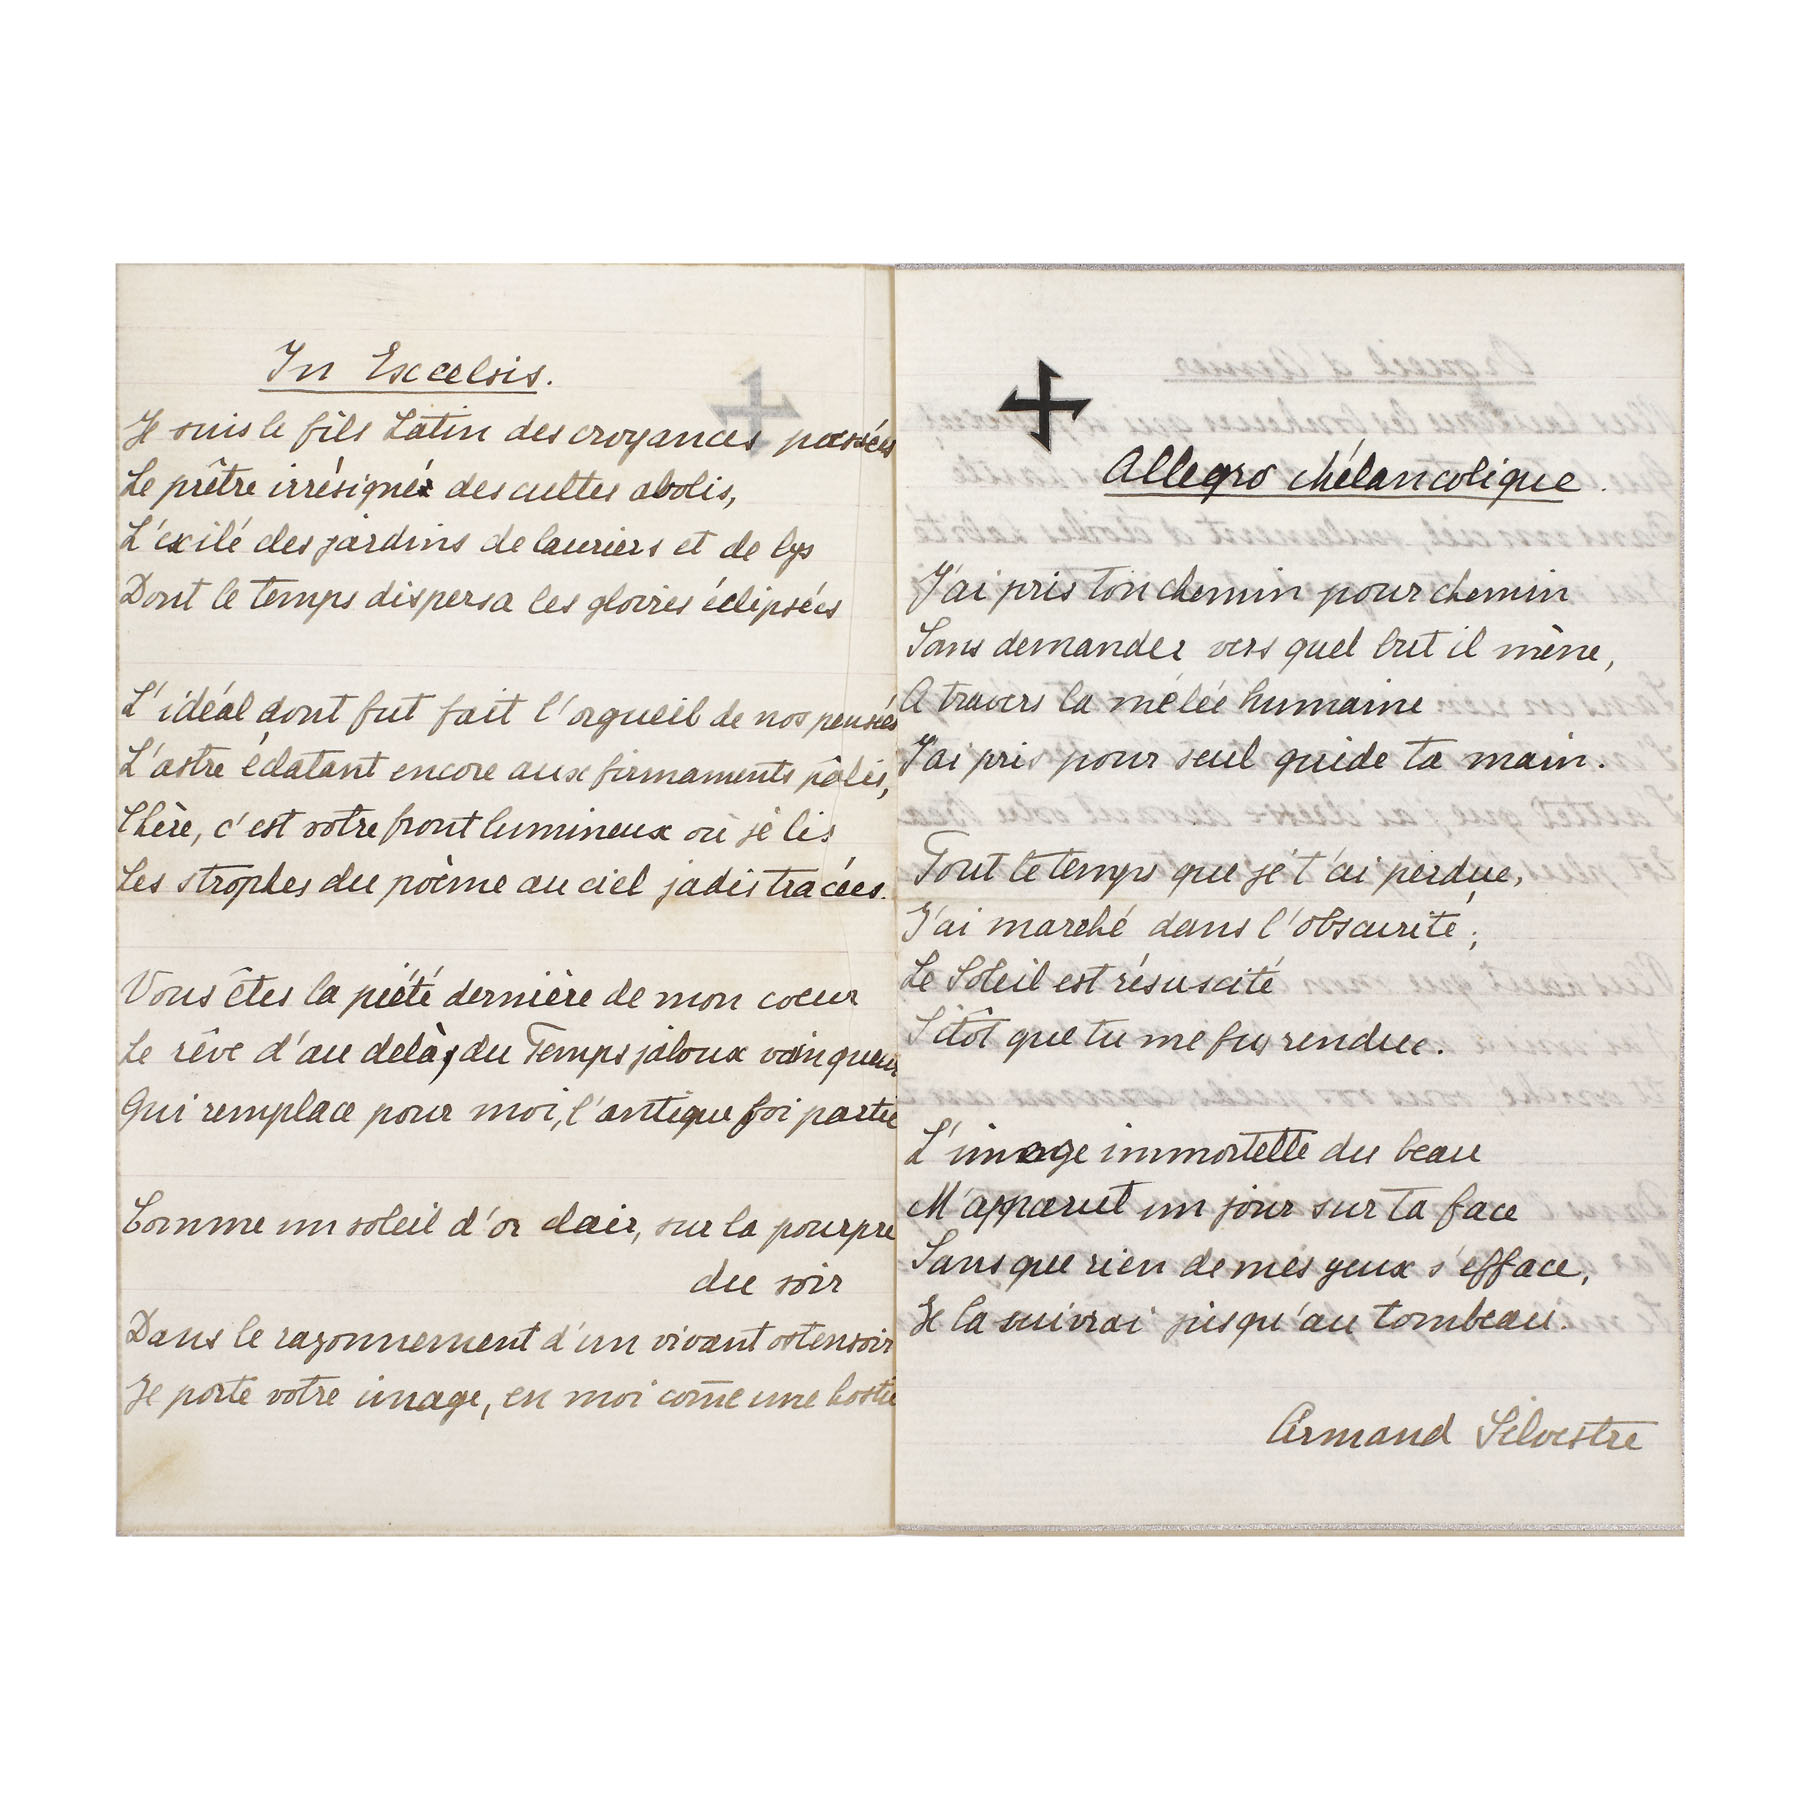 In Excelsis.
Je suis le fils Latin des croyances passées
Le prêtre irrésigné des cultes abolis,
L'exilé des jardins de lauriers et de lys
Dont le temps dispersa les gloires éclipsées
L'idéal dont fut fait l'orgueil de nos pensées
L'astre éclatant encore aux firmaments pâlis,
Chère, c'est votre front lumineux où je lis
Les strophes du poème au ciel jadis tracées.
Vous êtes la piété dernière de mon coeur
Le rêve d'au delà, du Temps jaloux vainqueur
Qui remplace pour moi, l'antique foi partie
Comme un soleil d'or clair, sur la pourpre
du soir
Dans le rayonnement d'un vivant ostensoir
Je porte votre image, en moi com̄e une hostie
Allegro Mélancolique.
J'ai pris ton chemin pour chemin
Sans demander vers quel but il mène,
A travers la mêlée humaine
J'ai pris pour seul guide ta main.
Tout le temps que je t'ai perdue,
J'ai marché dans l'obscurité;
Le Soleil est résuscité
Sitôt que tu me fus rendue.
L'image immortelle du beau
M'apparut un jour sur ta face
Sans que rien de mes yeux s'efface,
Je la suivrai jusqu'au tombeau.
Armand Silvestre